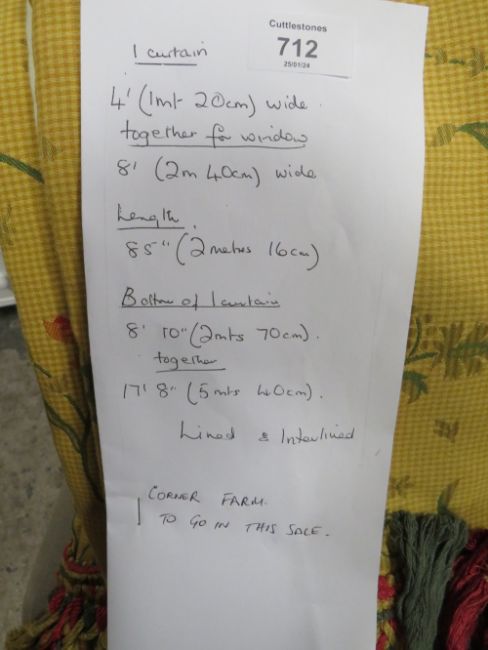 Cuttlestones
712
25/01/24
1 curtain
4' (1mt 20cm) wide
together for window
8' (2m 40cm) wide
Length
85" (2 metres 16cm)
Bottom of 1 curtain
8' 10" (2mts 70cm).
together
17' 8" (5 mts 40cm).
Lined & Interlined
CORNER FARM.
TO GO IN THIS SALE.